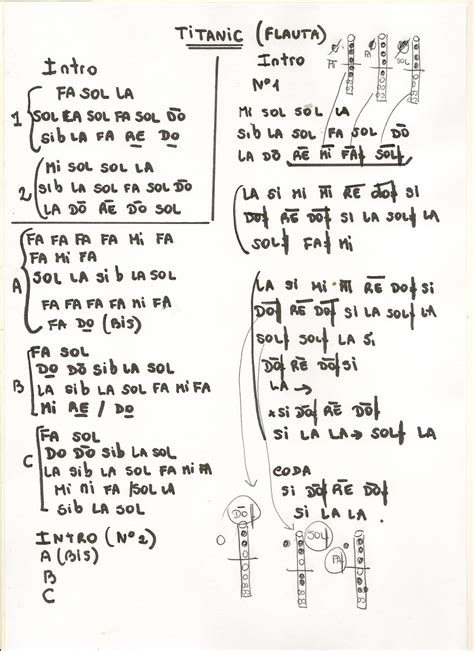 TiTANiC (FLAUTA)
Intro
1
FA SOL LA
SOL LA SOL FA SOL DŌ
Sib LA FA RE DO
2
Mi SOL SOL LA
Sib LA SOL FA SOL DO
LA DŌ RE DO SOL
A
FA FA FA FA Mi FA
FA Mi FA
SOL LA Sib LA SOL
FA FA FA FA Mi FA
FA DO (BiS)
B
FA SOL
DO DŌ Sib LA SOL
LA Sib LA SOL FA Mi FA
Mi RE / DO
C
FA SOL
DO DŌ Sib LA SOL
LA Sib LA SOL FA Mi FA
Mi Mi FA /SOL LA
Sib LA SOL
INTRO (Nº2)
A (Bis)
B
C
Intro
Nº1
FA
SOL
Mi SOL SOL LA
Sib LA SOL FA SOL DŌ
LA DŌ RE Mi FA♯ SOL♯
LA Si Mi Mi RE DO♯ Si
DO♯ RE DO♯ Si LA SOL♯ LA
SOL♯ FA♯ Mi
LA Si Mi Mi RE DO♯ Si
DO♯ RE DO♯ Si LA SOL♯ LA
SOL♯ SOL♯ LA Si
DO♯ RE DO♯ Si
LA →
*Si DO♯ RE DO♯
Si LA LA → SOL♯ LA
CODA
Si DO♯ RE DO♯
Si LA LA
DŌ
SOL♯
FA♯